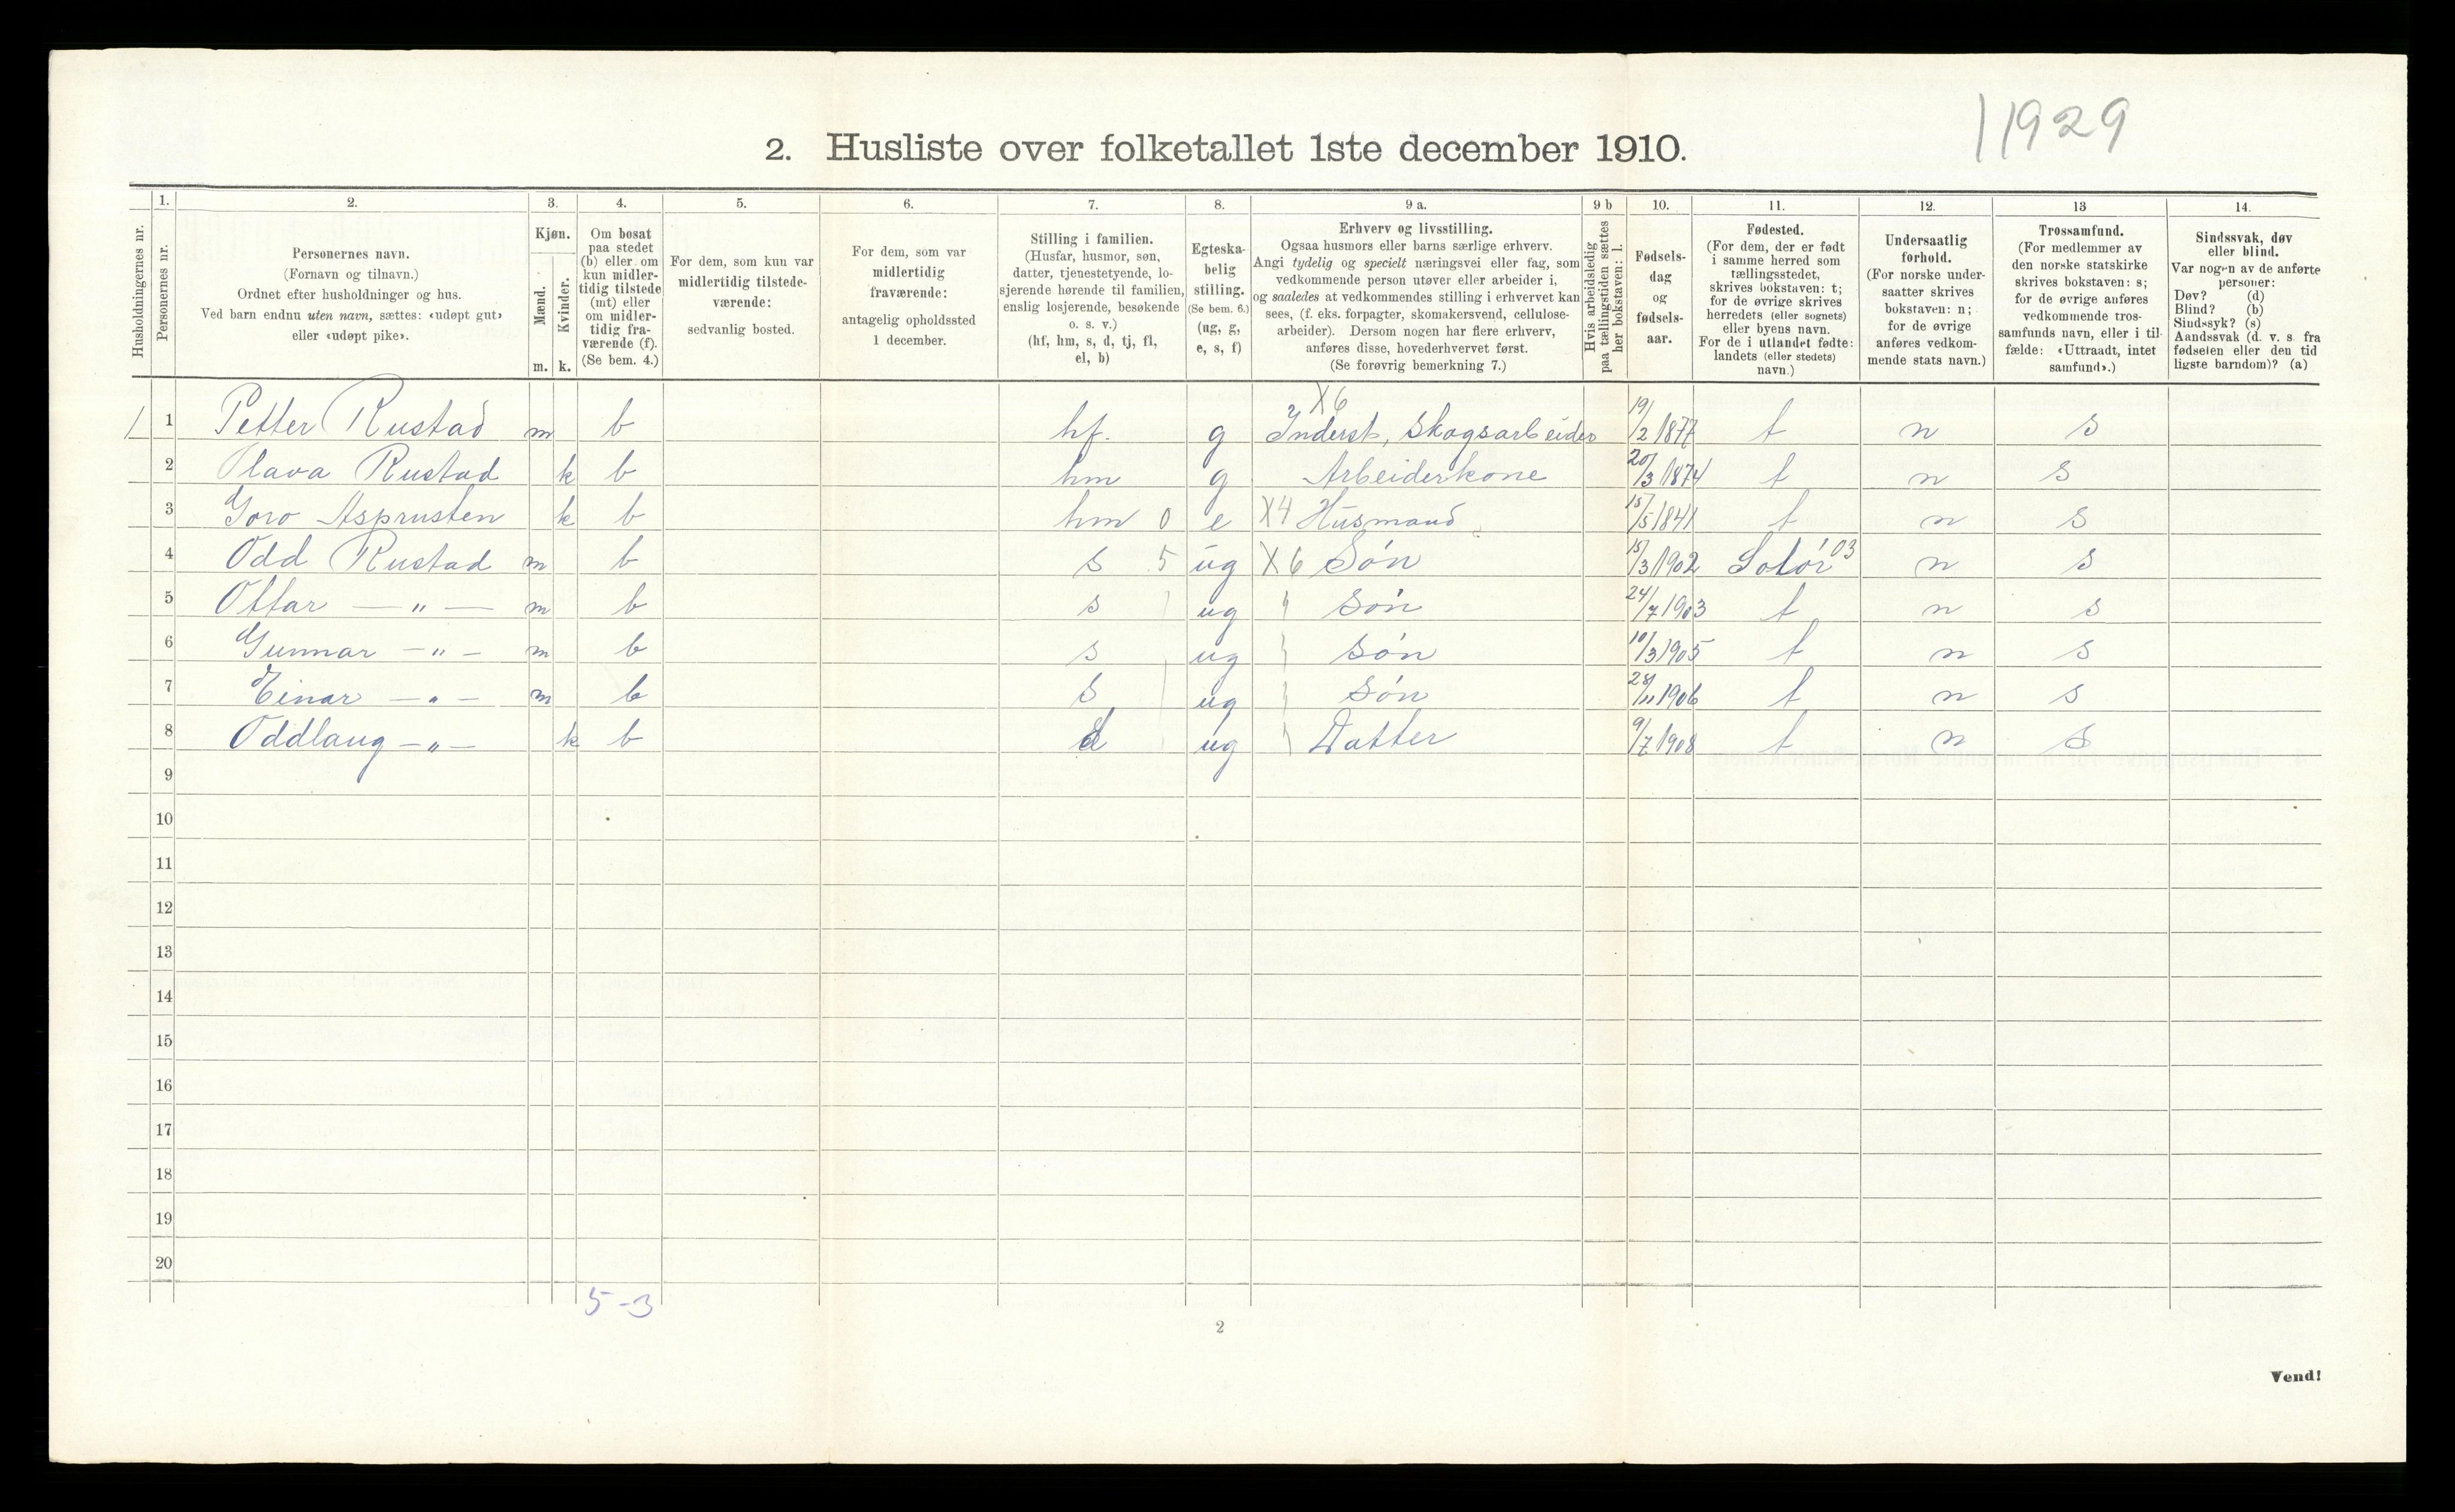 11929
2. Husliste over folketallet 1ste december 1910.
Husholdningernes nr.
1.
Personernes nr.
2.
Personernes navn.
(Fornavn og tilnavn.)
Ordnet efter husholdninger og hus.
Ved barn endnu uten navn, sættes: «udøpt gut»
eller «udøpt pike».
3.
Kjøn.
Mænd.
Kvinder.
m. k.
4.
Om bosat
paa stedet
(b) eller om
kun midler-
tidig tilstede
(mt) eller
om midler-
tidig fra-
værende (f).
(Se bem. 4.)
5.
For dem, som kun var
midlertidig tilstede-
værende:
sedvanlig bosted.
6.
For dem, som var
midlertidig
fraværende:
antagelig opholdssted
1 december.
7.
Stilling i familien.
(Husfar, husmor, søn,
datter, tjenestetyende, lo-
sjerende hørende til familien,
enslig losjerende, besøkende
o. s. v.)
(hf, hm, s, d, tj, fl,
el, b)
8.
Egteska-
belig
stilling.
(Se bem. 6.)
(ug, g,
e, s, f)
9 a.
Erhverv og livsstilling.
Ogsaa husmors eller barns særlige erhverv.
Angi tydelig og specielt næringsvei eller fag, som
vedkommende person utøver eller arbeider i,
og saaledes at vedkommendes stilling i erhvervet kan
sees, (f. eks. forpagter, skomakersvend, cellulose-
arbeider). Dersom nogen har flere erhverv,
anføres disse, hovederhvervet først.
(Se forøvrig bemerkning 7.)
9 b
Hvis arbeidsledig
paa tællingstiden sættes
her bokstaven: l.
10.
Fødsels-
dag
og
fødsels-
aar.
11.
Fødested.
(For dem, der er født
i samme herred som
tællingsstedet,
skrives bokstaven: t;
for de øvrige skrives
herredets (eller sognets)
eller byens navn.
For de i utlandet fødte:
landets (eller stedets)
navn.)
12.
Undersaatlig
forhold.
(For norske under-
saatter skrives
bokstaven: n;
for de øvrige
anføres vedkom-
mende stats navn.)
13
Trossamfund.
(For medlemmer av
den norske statskirke
skrives bokstaven: s;
for de øvrige anføres
vedkommende tros-
samfunds navn, eller i til-
fælde: «Uttraadt, intet
samfund».)
14.
Sindssvak, døv
eller blind.
Var nogen av de anførte
personer:
Døv? (d)
Blind? (b)
Sindssyk? (s)
Aandssvak (d. v. s. fra
fødselen eller den tid
ligste barndom)? (a)
X6
1 1 Petter Rustad m b hf. g Inderst, Skogsarbeider 19/2 1877 t n s
2 Olava Rustad k b hm g Arbeiderkone 20/3 1874 t n s
3 Goro Asprusten k b hm 0 e X4 Husmand 15/5 1841 t n s
4 Odd Rustad m b s 5 ug X6 Søn 15/3 1902 Solør 03 n s
5 Ottar — " — m b s ug Søn 24/7 1903 t n s
6 Gunnar — " — m b s ug Søn 10/3 1905 t n s
7 Einar — " — m b s ug Søn 28/11 1906 t n s
8 Oddlaug — " — k b d ug Datter 9/7 1908 t n s
9
10
11
12
13
14
15
16
17
18
19
20
5-3
2
Vend!